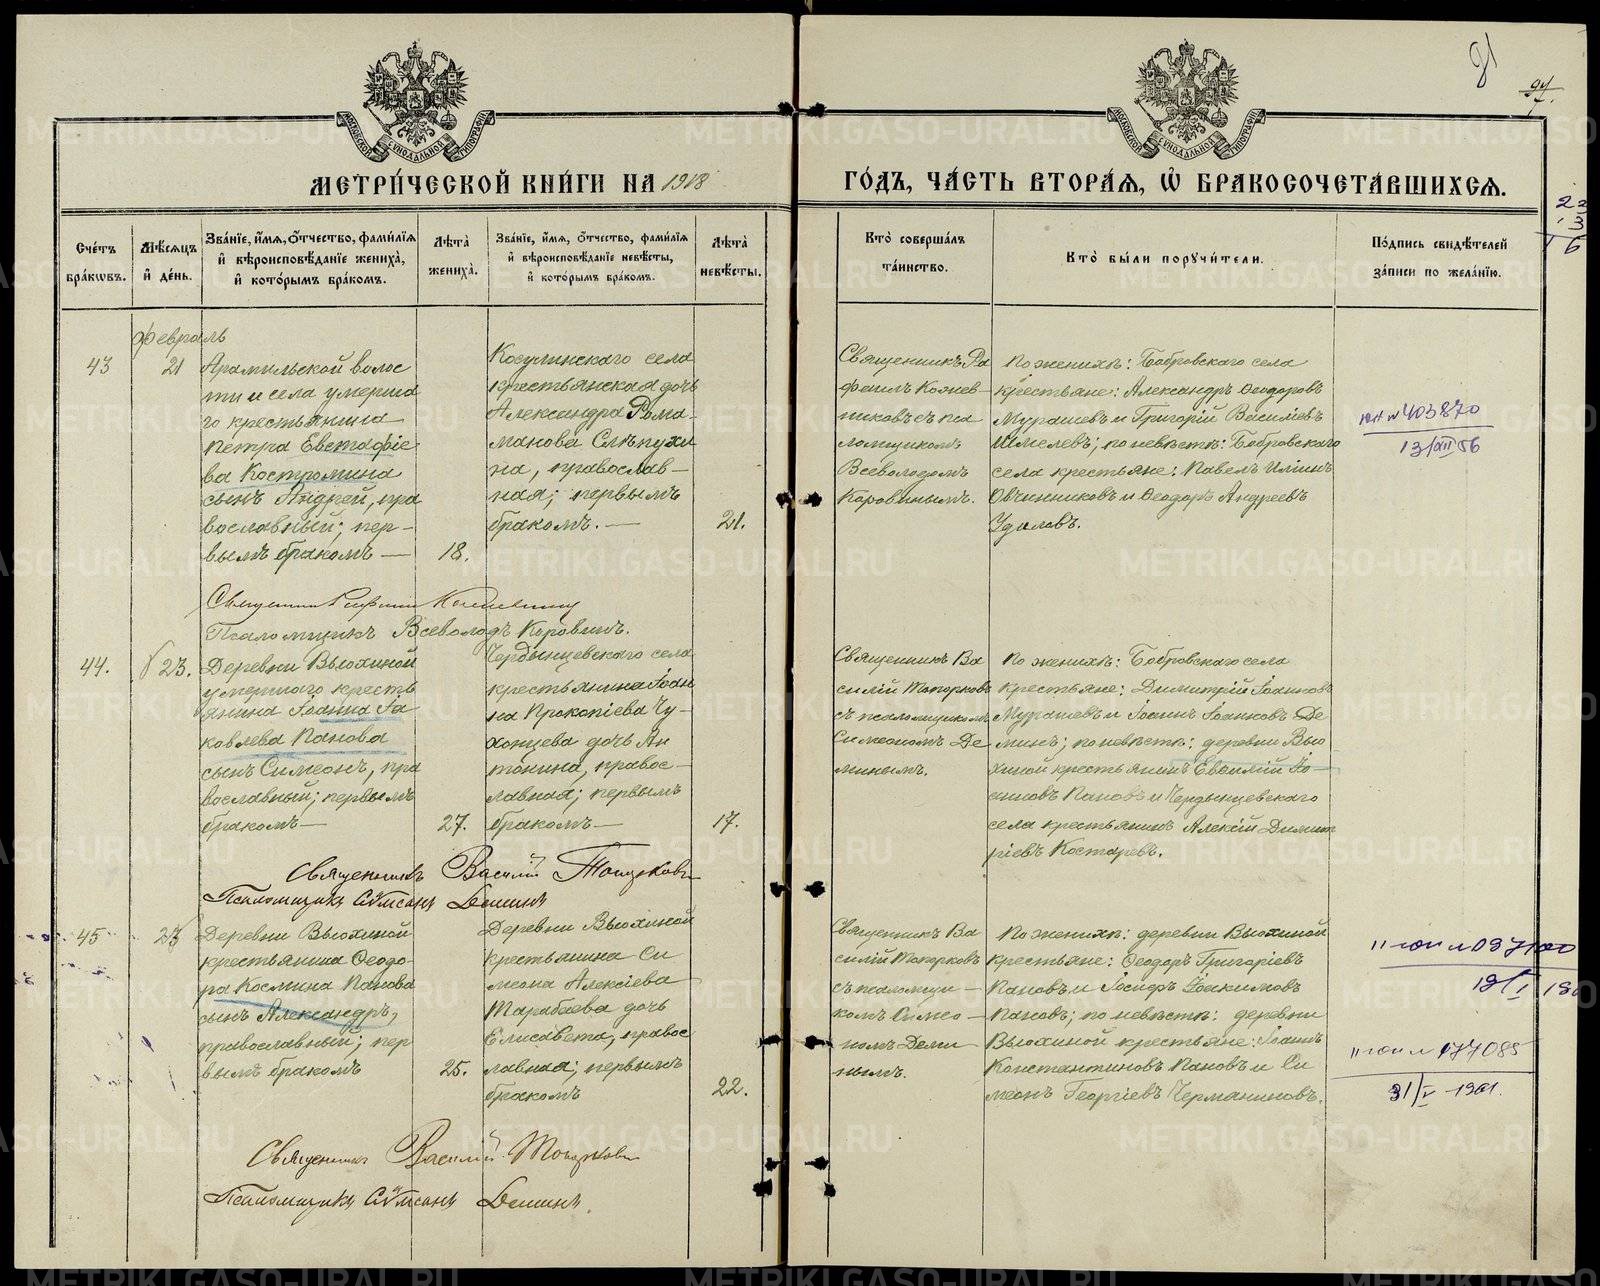 МЕТРИ́ЧЕСКОЙ КНИ́ГИ НА 1918
ГО́ДЪ, ЧА́СТЬ ВТОРА́Я, Ѿ БРАКОСОЧЕТА́ВШИХСЯ.
Сче́тъ бра́кωвъ.
Мѣ́сяцъ и҆ де́нь.
Зва́нїе, и҆́мя, ѻ҆́тчество, фами́лїя
и҆ вѣроисповѣ́данїе жениха̀,
и҆ кото́рымъ бра́комъ.
Лѣ́та жениха̀.
Зва́нїе, и҆́мя, ѻ҆́тчество, фами́лїя
и҆ вѣроисповѣ́данїе невѣ́сты,
и҆ кото́рымъ бра́комъ.
Лѣ́та невѣ́сты.
Кто̀ соверша́лъ та́инство.
Кто̀ бы́ли поручи́тели.
По́дпись свидѣ́телей за́писи по жела́нїю.
Февраль
43
21
Арамильской волос
ти и села умерша
го крестьянина
Петра Евстафіе
ва Костромина
сынъ Андрей, пра
вославный; пер-
вымъ бракомъ —
18.
Косулинскаго села
крестьянская дочь
Александра Рома-
манова Слѣпухи
на, православ-
ная; первымъ
бракомъ. —
21.
Священникъ Ра
фаилъ Кожев-
никовъ съ пса
ломщикомъ
Всеволодомъ
Коровинымъ.
По женихѣ: Бобровскаго села
крестьяне: Александръ Ѳеодоровъ
Мурашевъ и Григорій Васильевъ
Шмелевъ; по невѣстѣ: Бобровскаго
села крестьяне: Павелъ Иліинъ
Овчинниковъ и Ѳеодоръ Андреевъ
Удиловъ.
403870
13/XII 56
Священникъ Рафаилъ Кожевниковъ
Псаломщикъ Всеволодъ Коровинъ.
44.
23.
Деревни Вьюхиной
умершаго кресть
янина Іоанна Іа
ковлева Панова
сынъ Симеонъ, пра
вославный; первымъ
бракомъ —
27.
Чердынцевскаго села
крестьянина Іоан
на Прокопіева Чу-
хонцева дочь Ан
тонина, правос-
лавная; первымъ
бракомъ —
17.
Священникъ Ва
силій Топорковъ
съ псаломщикомъ
Симеономъ Де
минымъ.
По женихѣ: Бобровскаго села
крестьяне: Димитрій Іоанновъ
Мурашевъ и Іоаннъ Іоанновъ Де
минъ; по невѣстѣ: деревни Вью
хиной крестьянинъ Евѳимій Іо
анновъ Пановъ и Чердынцевскаго
села крестьянинъ Алексій Димит
ріевъ Костаревъ.
Священникъ Василій Топорковъ
Псаломщикъ Сѵмеонъ Деминъ
45
23
Деревни Вьюхиной
крестьянина Ѳеодо-
ра Космина Панова
сынъ Александръ,
православный; пер
вымъ бракомъ
25.
Деревни Вьюхиной
крестьянина Си
меона Алексіева
Тарабаева дочь
Елисавета, правос
лавная; первымъ
бракомъ
22.
Священникъ Ва
силій Топорковъ
съ псаломщи-
комъ Симео-
номъ Деми
нымъ.
По женихѣ: деревни Вьюхиной
крестьяне: Ѳеодоръ Григоріевъ
Пановъ и Іосифъ Іоакимовъ
Пановъ; по невѣстѣ: деревни
Вьюхиной крестьяне: Іоаннъ
Константиновъ Пановъ и Си
меонъ Георгіевъ Черманиновъ.
31/V 1961.
Священникъ Василій Топорковъ
Псаломщикъ Сѵмеонъ Деминъ.